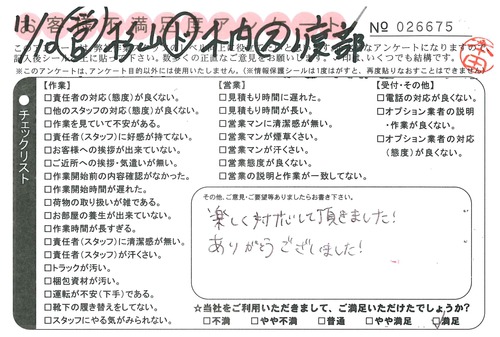 お客様満足度アンケート
№ 026675
※このアンケートは、アンケート目的以外には使用いたしません。(※情報保護シールは1度はがすと、再度貼りなおすことはできません)
チェックリスト
【作業】
□責任者の対応(態度)が良くない。
□他のスタッフの対応(態度)が良くない。
□作業を見ていて不安がある。
□責任者(スタッフ)に好感が持てない。
□お客様への挨拶が出来ていない。
□ご近所への挨拶・気遣いが無い。
□作業開始前の内容確認がなかった。
□作業開始時間が遅れた。
□荷物の取り扱いが雑である。
□お部屋の養生が出来ていない。
□作業時間が長すぎる。
□責任者(スタッフ)に清潔感が無い。
□責任者(スタッフ)が汗くさい。
□トラックが汚い。
□梱包資材が汚い。
□運転が不安(下手)である。
□靴下の履き替えをしてない。
□スタッフにやる気がみられない。
【営業】
□見積もり時間に遅れた。
□見積もり時間が長い。
□営業マンに清潔感が無い。
□営業マンが煙草くさい。
□営業マンが汗くさい。
□営業態度が良くない。
□営業の説明と作業が一致してない。
【受付・その他】
□電話の対応が良くない。
□オプション業者の説明
・作業が良くない。
□オプション業者の対応
(態度)が良くない。
その他、ご意見・ご要望等ありましたらお書き下さい。
楽しく対応して頂きました!
ありがとうございました!
☆当社をご利用いただきまして、ご満足いただけたでしょうか?
□不満 □やや不満 □普通 □やや満足 ☑満足